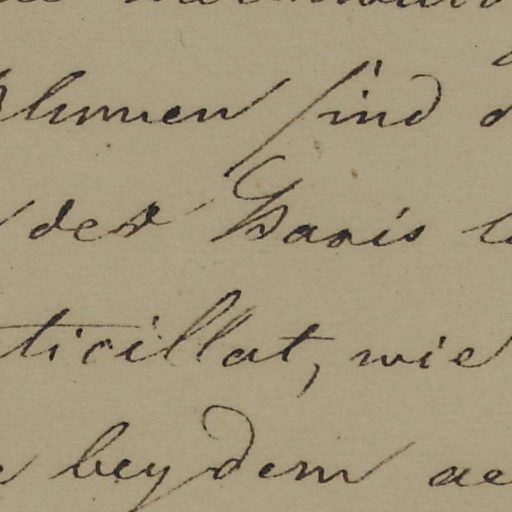 Blumen sind
der Paris
ticillat, wie
beydem